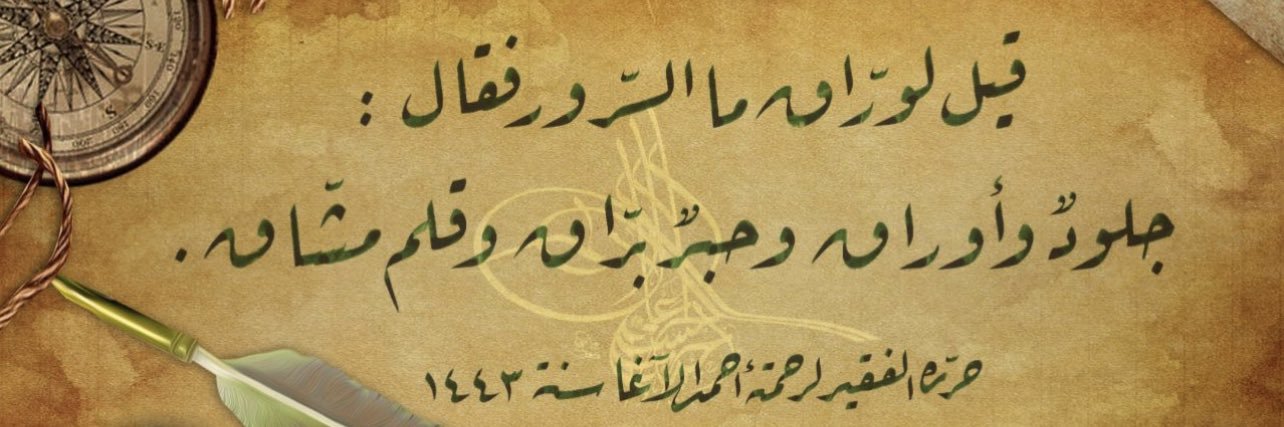 قيل لورّاق ما السّرور فقال :
جلودٌ وأوراق وحبرٌ برّاق وقلم مشّاق .
حرّره الفقير لرحمته أحمد الآغا سنة ١٤٤٣